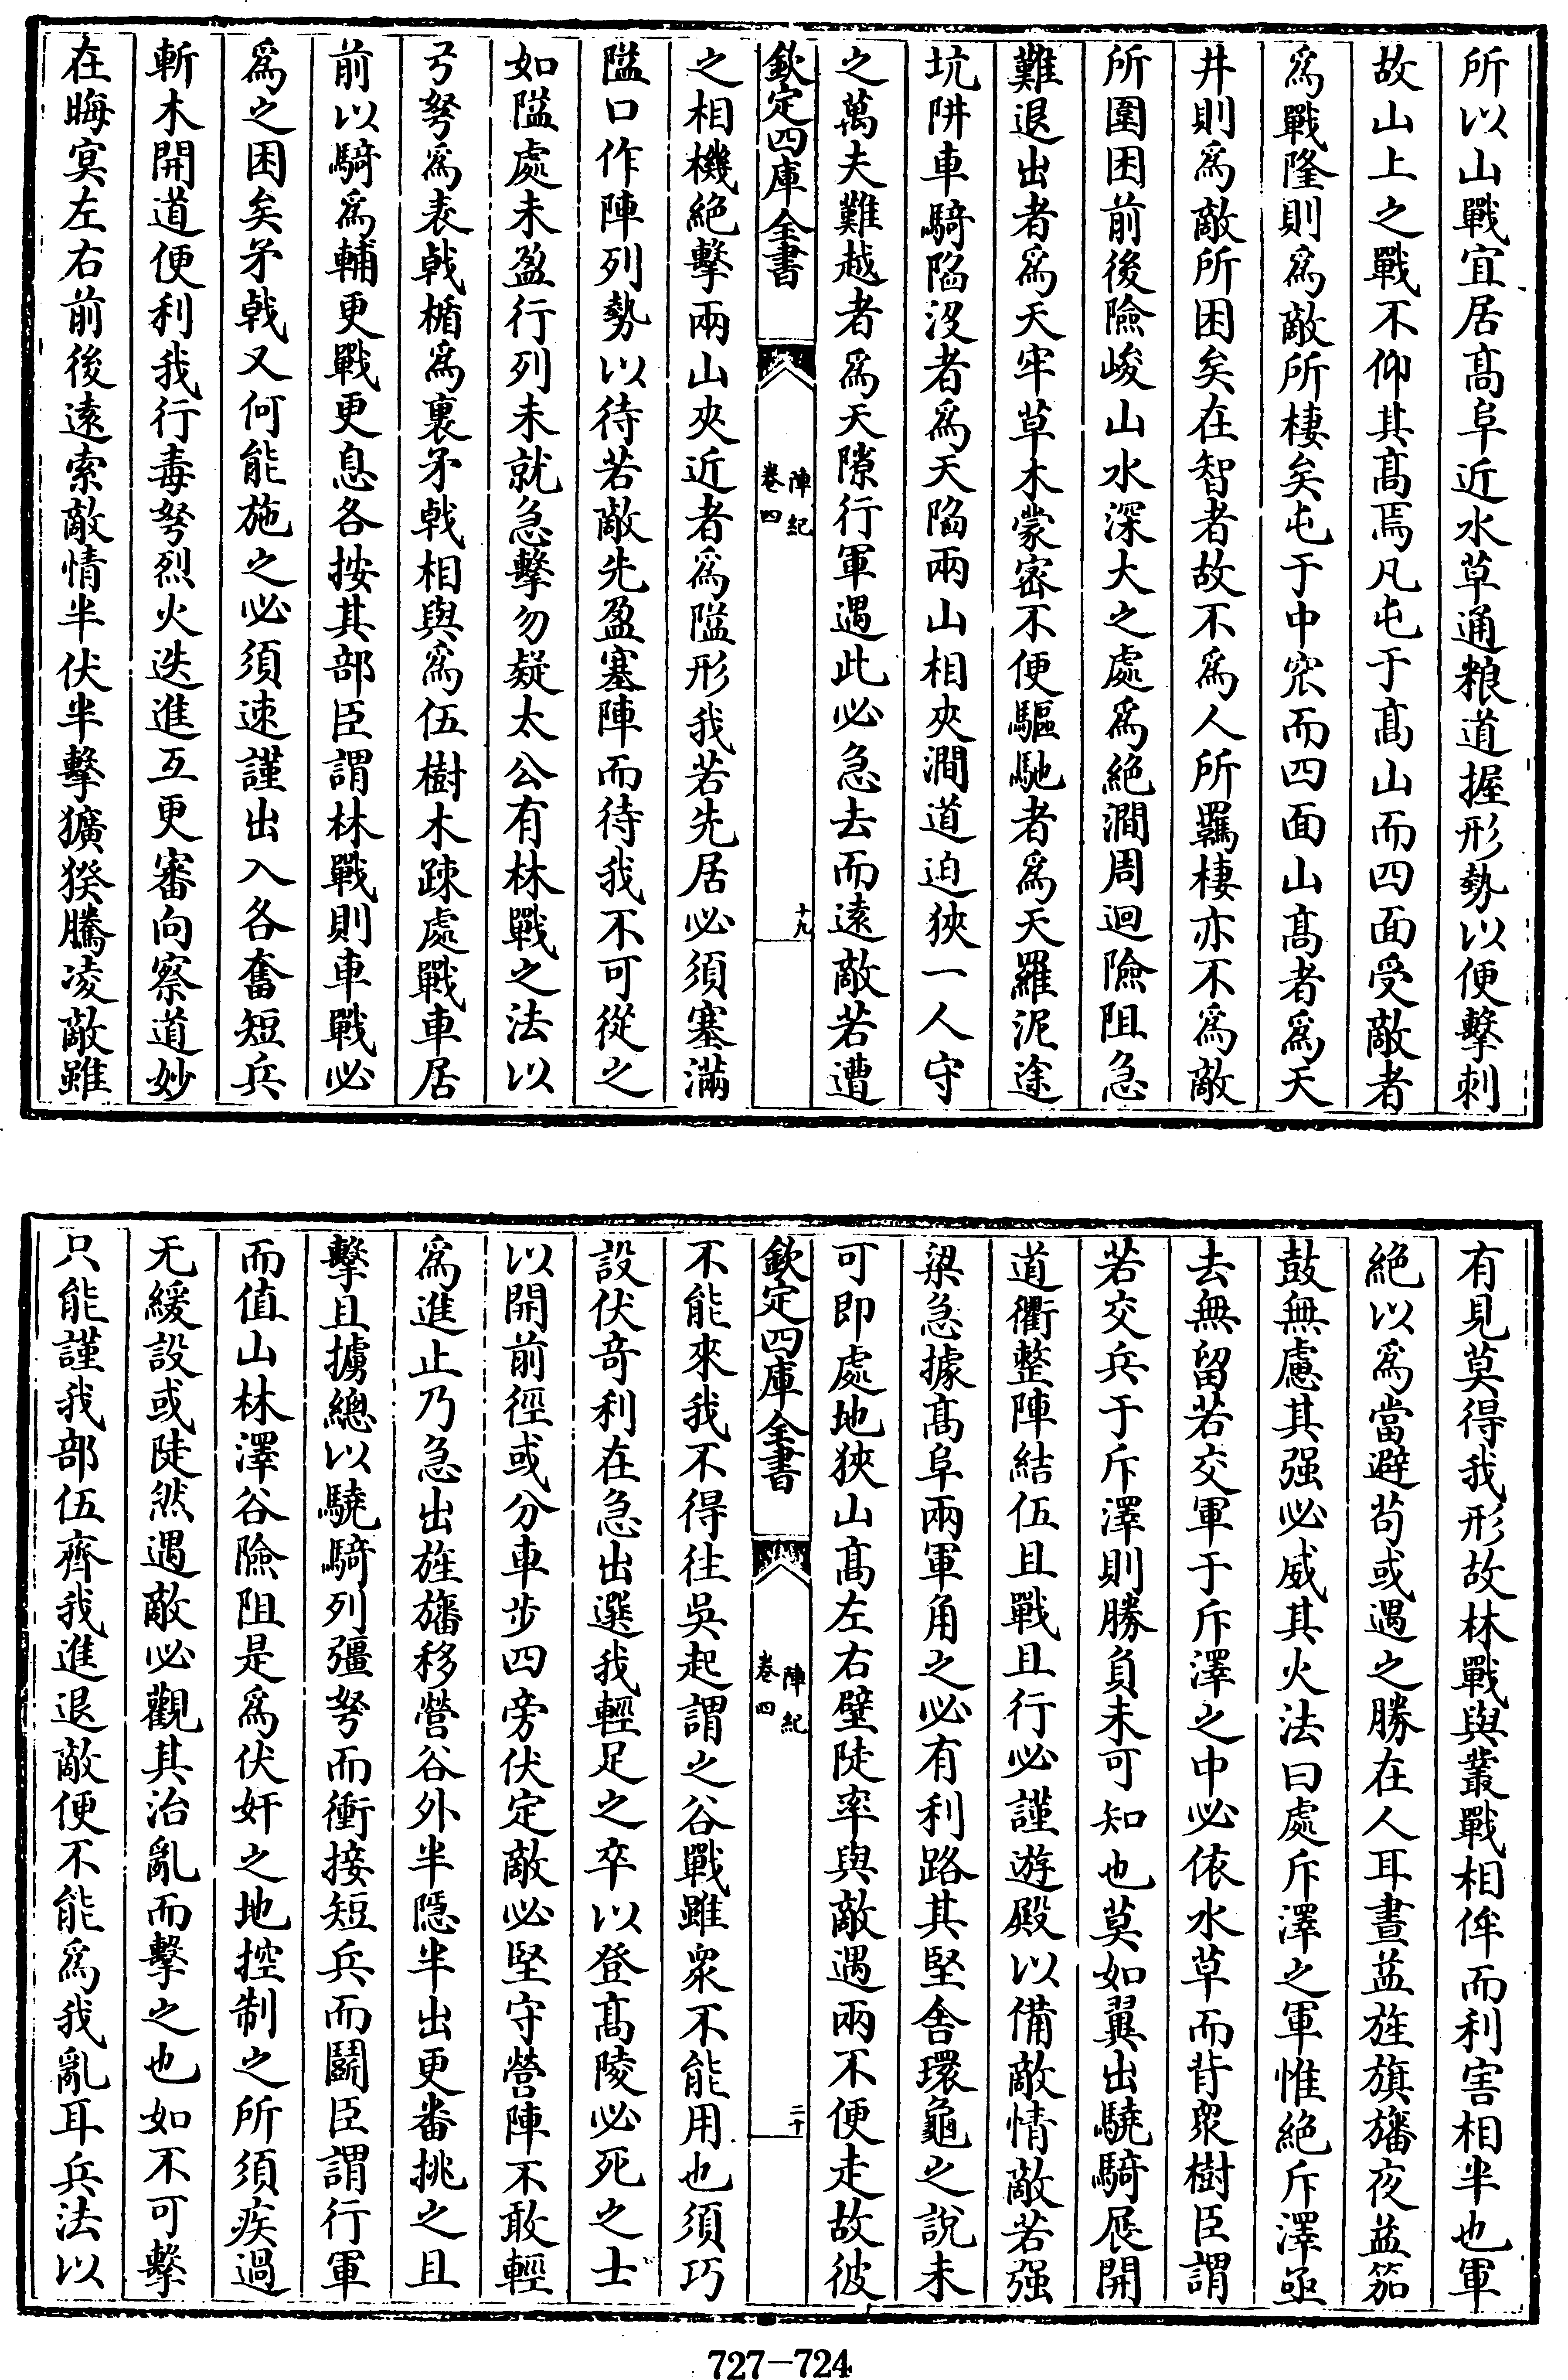 所以山戰宜居髙阜近水草通粮道握形勢以便擊刺
故山上之戰不仰其髙焉凡屯于髙山而四面受敵者
爲戰隆則爲敵所棲矣屯于中窊而四面山髙者爲天
井則爲敵所困矣在智者故不爲人所羈棲亦不爲敵
所圍困前後險峻山水深大之處爲絶澗周迴險阻急
難退出者爲天牢草木蒙宻不便驅馳者爲天羅泥途
坑阱車騎陷沒者爲天陷兩山相夾澗道迫狹一人守
之萬夫難越者爲天隙行軍遇此必急去而遠敵若遭
欽定四庫全書
陣紀
卷四
十九
之相機絶擊兩山夾近者爲隘形我若先居必須塞滿
隘口作陣列勢以待若敵先盈塞陣而待我不可從之
如隘處未盈行列未就急擊勿疑太公有林戰之法以
弓弩爲表戟楯爲裏矛戟相與爲伍樹木疎處戰車居
前以騎爲輔更戰更息各按其部臣謂林戰則車戰必
爲之困矣矛戟又何能施之必須速謹出入各奮短兵
斬木開道便利我行毒弩烈火迭進互更審向察道妙
在晦㝠左右前後遠索敵情半伏半擊獷猤騰凌敵雖
有見莫得我形故林戰與叢戰相侔而利害相半也軍
絶以爲當避苟或遇之勝在人耳晝益旌旗旛夜益笳
鼓無慮其强必威其火法曰處斥澤之軍惟絶斥澤亟
去無留若交軍于斥澤之中必依水草而背衆樹臣謂
若交兵于斥澤則勝負未可知也莫如翼出驍騎展開
道衢整陣結伍且戰且行必謹遊殿以備敵情敵若强
梁急據髙阜兩軍角之必有利路其堅舍環龜之說未
可即處地狹山髙左右壁陡率與敵遇兩不便走故彼
欽定四庫全書
陣紀
卷四
二十
不能來我不得往吳起謂之谷戰雖衆不能用也須巧
設伏竒利在急出選我輕足之卒以登髙陵必死之士
以開前徑或分車步四旁伏定敵必堅守營陣不敢輕
爲進止乃急出旌旛移營谷外半隱半出更番挑之且
擊且擄總以驍騎列彊弩而衝接短兵而鬭臣謂行軍
而值山林澤谷險阻是爲伏奸之地控制之所須疾過
无緩設或陡然遇敵必觀其治亂而擊之也如不可擊
只能謹我部伍齊我進退敵便不能爲我亂耳兵法以
727—724